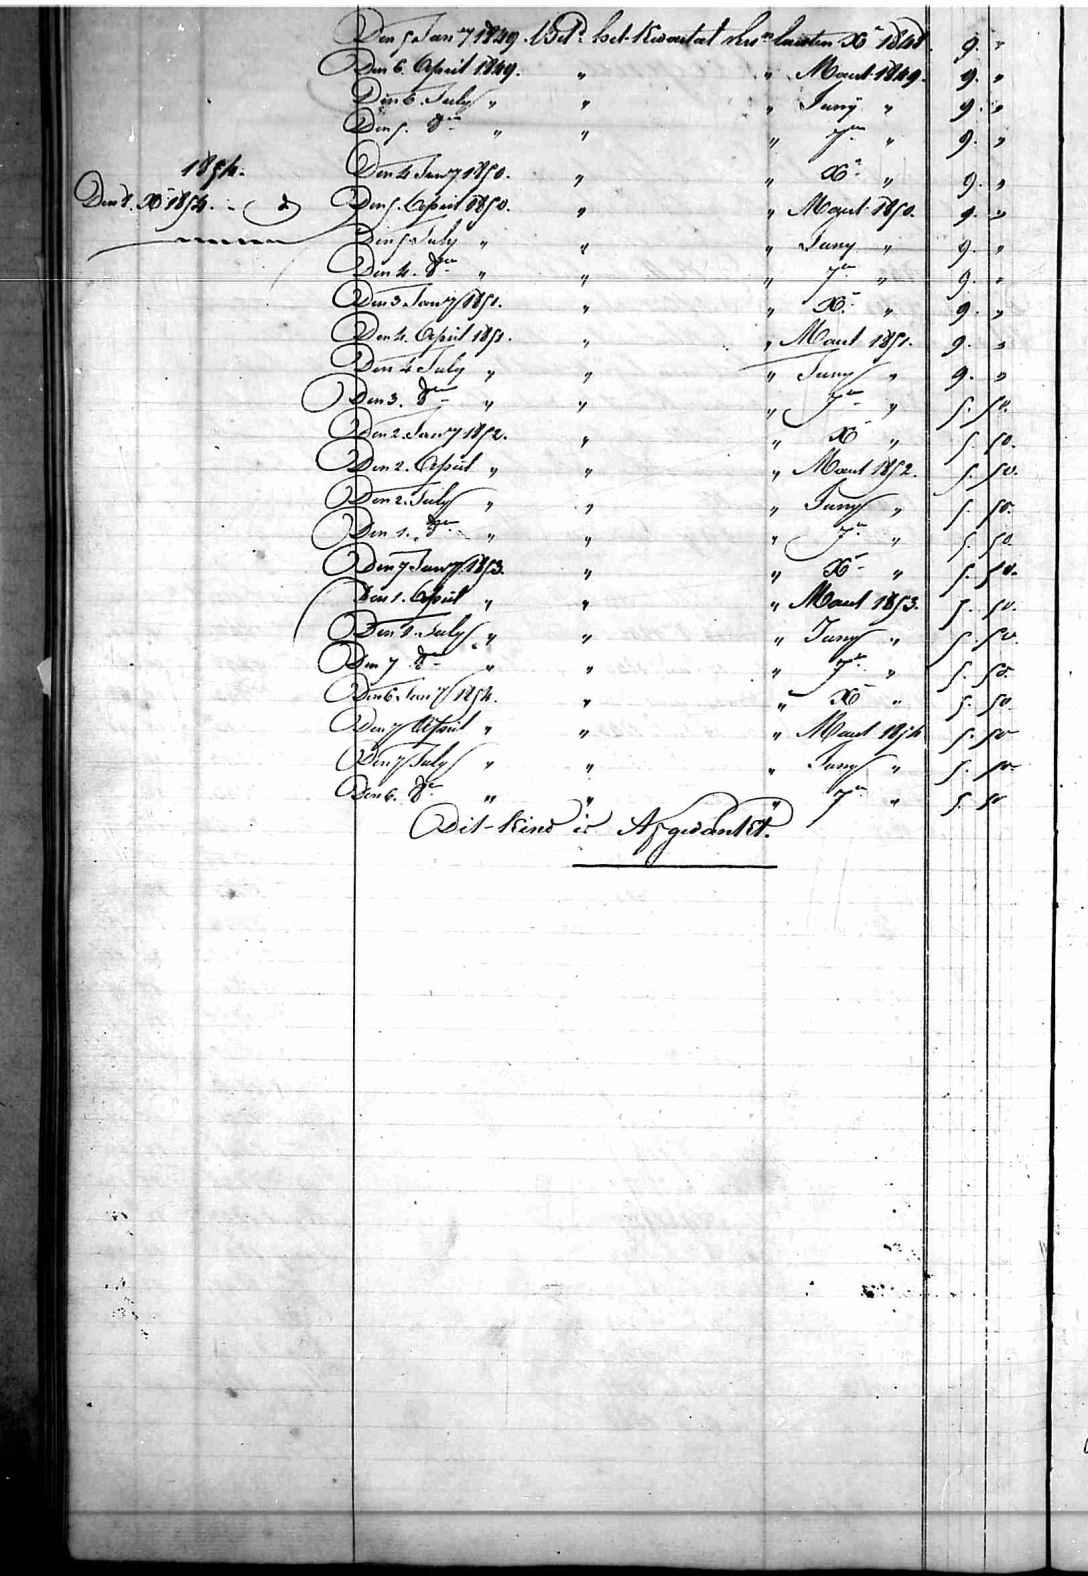 Den 5 Jan7 1849. Bet.d het Kwartaal den laasten Xr 1848. 9. "
Den 6. April 1849. " " Maart 1849. 9. "
Den 6. July " " " Juny " 9. "
Den 5. 8er " " " 7er " 9. "
1854.
Den 4 Jan7 1850. " " Xr " 9. "
Den 8. Xr 1854.
Den 5. April 1850. " " Maart 1850. 9. "
Den 5 July " " " Juny " 9. "
Den 4. 8er " " " 7er " 9. "
Den 3 Jan7 1851. " " Xr " 9. "
Den 4. April 1851. " " Maart 1851. 9. "
Den 4 July " " " Juny " 9. "
Den 3. 8er " " " 7er " 5. 50.
Den 2. Jan7 1852. " " Xr " 5. 50.
Den 2. April " " " Maart 1852. 5. 50.
Den 2. July " " " Juny " 5. 50.
Den 1. 8er " " " 7er " 5. 50.
Den 7 Jan7 1853. " " Xr " 5. 50.
Den 1. April " " " Maart 1853. 5. 50.
Den 1. July " " " Juny " 5. 50.
Den 7 8er " " " 7er " 5. 50.
Den 6. Jan7 1854. " " Xr " 5. 50
Den 7 April " " " Maart 1854 5. 50
Den 7 July " " " Juny " 5. 50
Den 6. 8er " " " 7er " 5. 50
Dit Kind is Afgedankt.